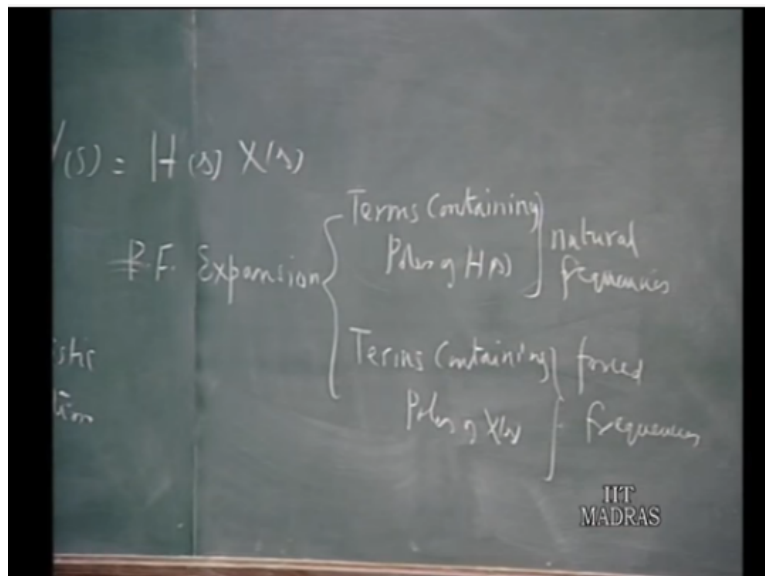 Y(s) = H(s) X(s)
P.F. Expansion
Terms Containing
Poles of H(s)
natural
frequencies
Terms Containing
Poles of X(s)
forced
frequencies
istic
tion
IIT
MADRAS